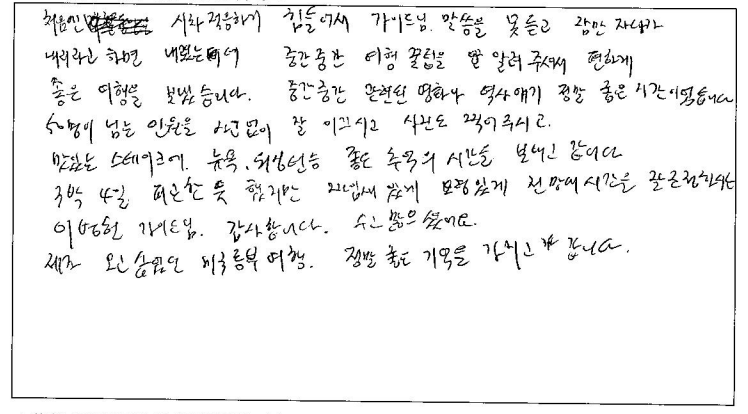 처음엔 시차 적응하기 힘들어서 가이드님 말씀을 못 듣고 잠만 자다가
내리라고 하면 내렸는데 중간중간 여행 꿀팁을 알려 주셔서 편하게
좋은 여행을 보냈습니다. 중간중간 관련된 영화나 역사얘기 정말 좋은 시간이었습니다
50명이 넘는 인원을 사고없이 잘 이끄시고 사진도 찍어주시고.
맛있는 스테이크에. 뉴욕, 워싱턴등 좋은 추억의 시간을 보내고 갑니다
3박 4일 피곤한 듯 했지만 짜임새 있게 전망대 시간을 잘 조정하시는
가이드님. 감사합니다. 수고 많으셨어요.
오고 싶었던 미국동부여행. 정말 좋은 기억을 가지고 갑니다.